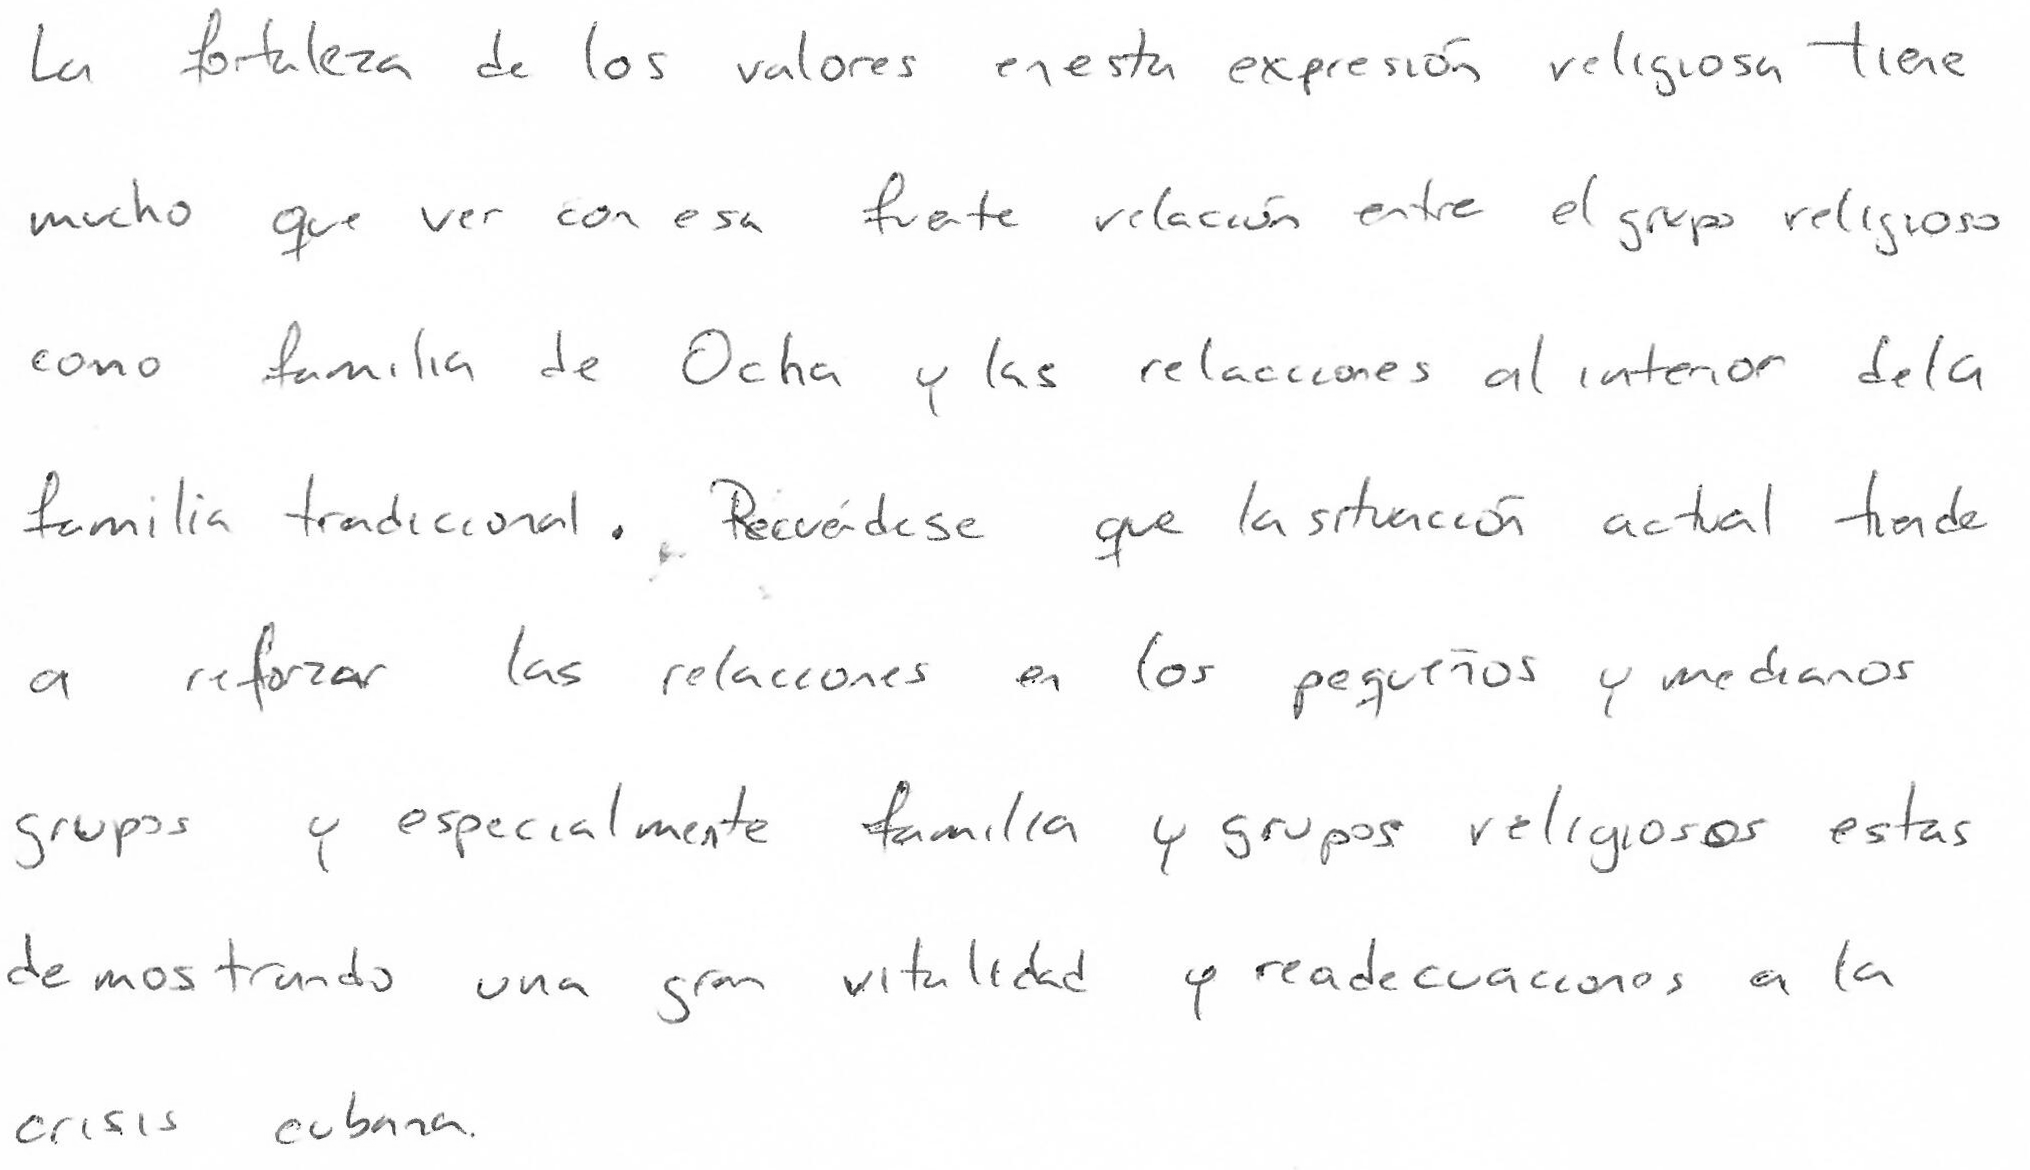 La fortaleza de los valores en esta expresión religiosa tiene
mucho que ver con esa fuerte relación entre el grupo religioso
como familia de Ocha y las relaciones al interior de la
familia tradicional. Recuérdese que la situación actual tiende
a reforzar las relaciones en los pequeños y medianos
grupos y especialmente familia y grupos religiosos estas
demostrando una gran vitalidad y readecuaciones a la
crisis cubana.